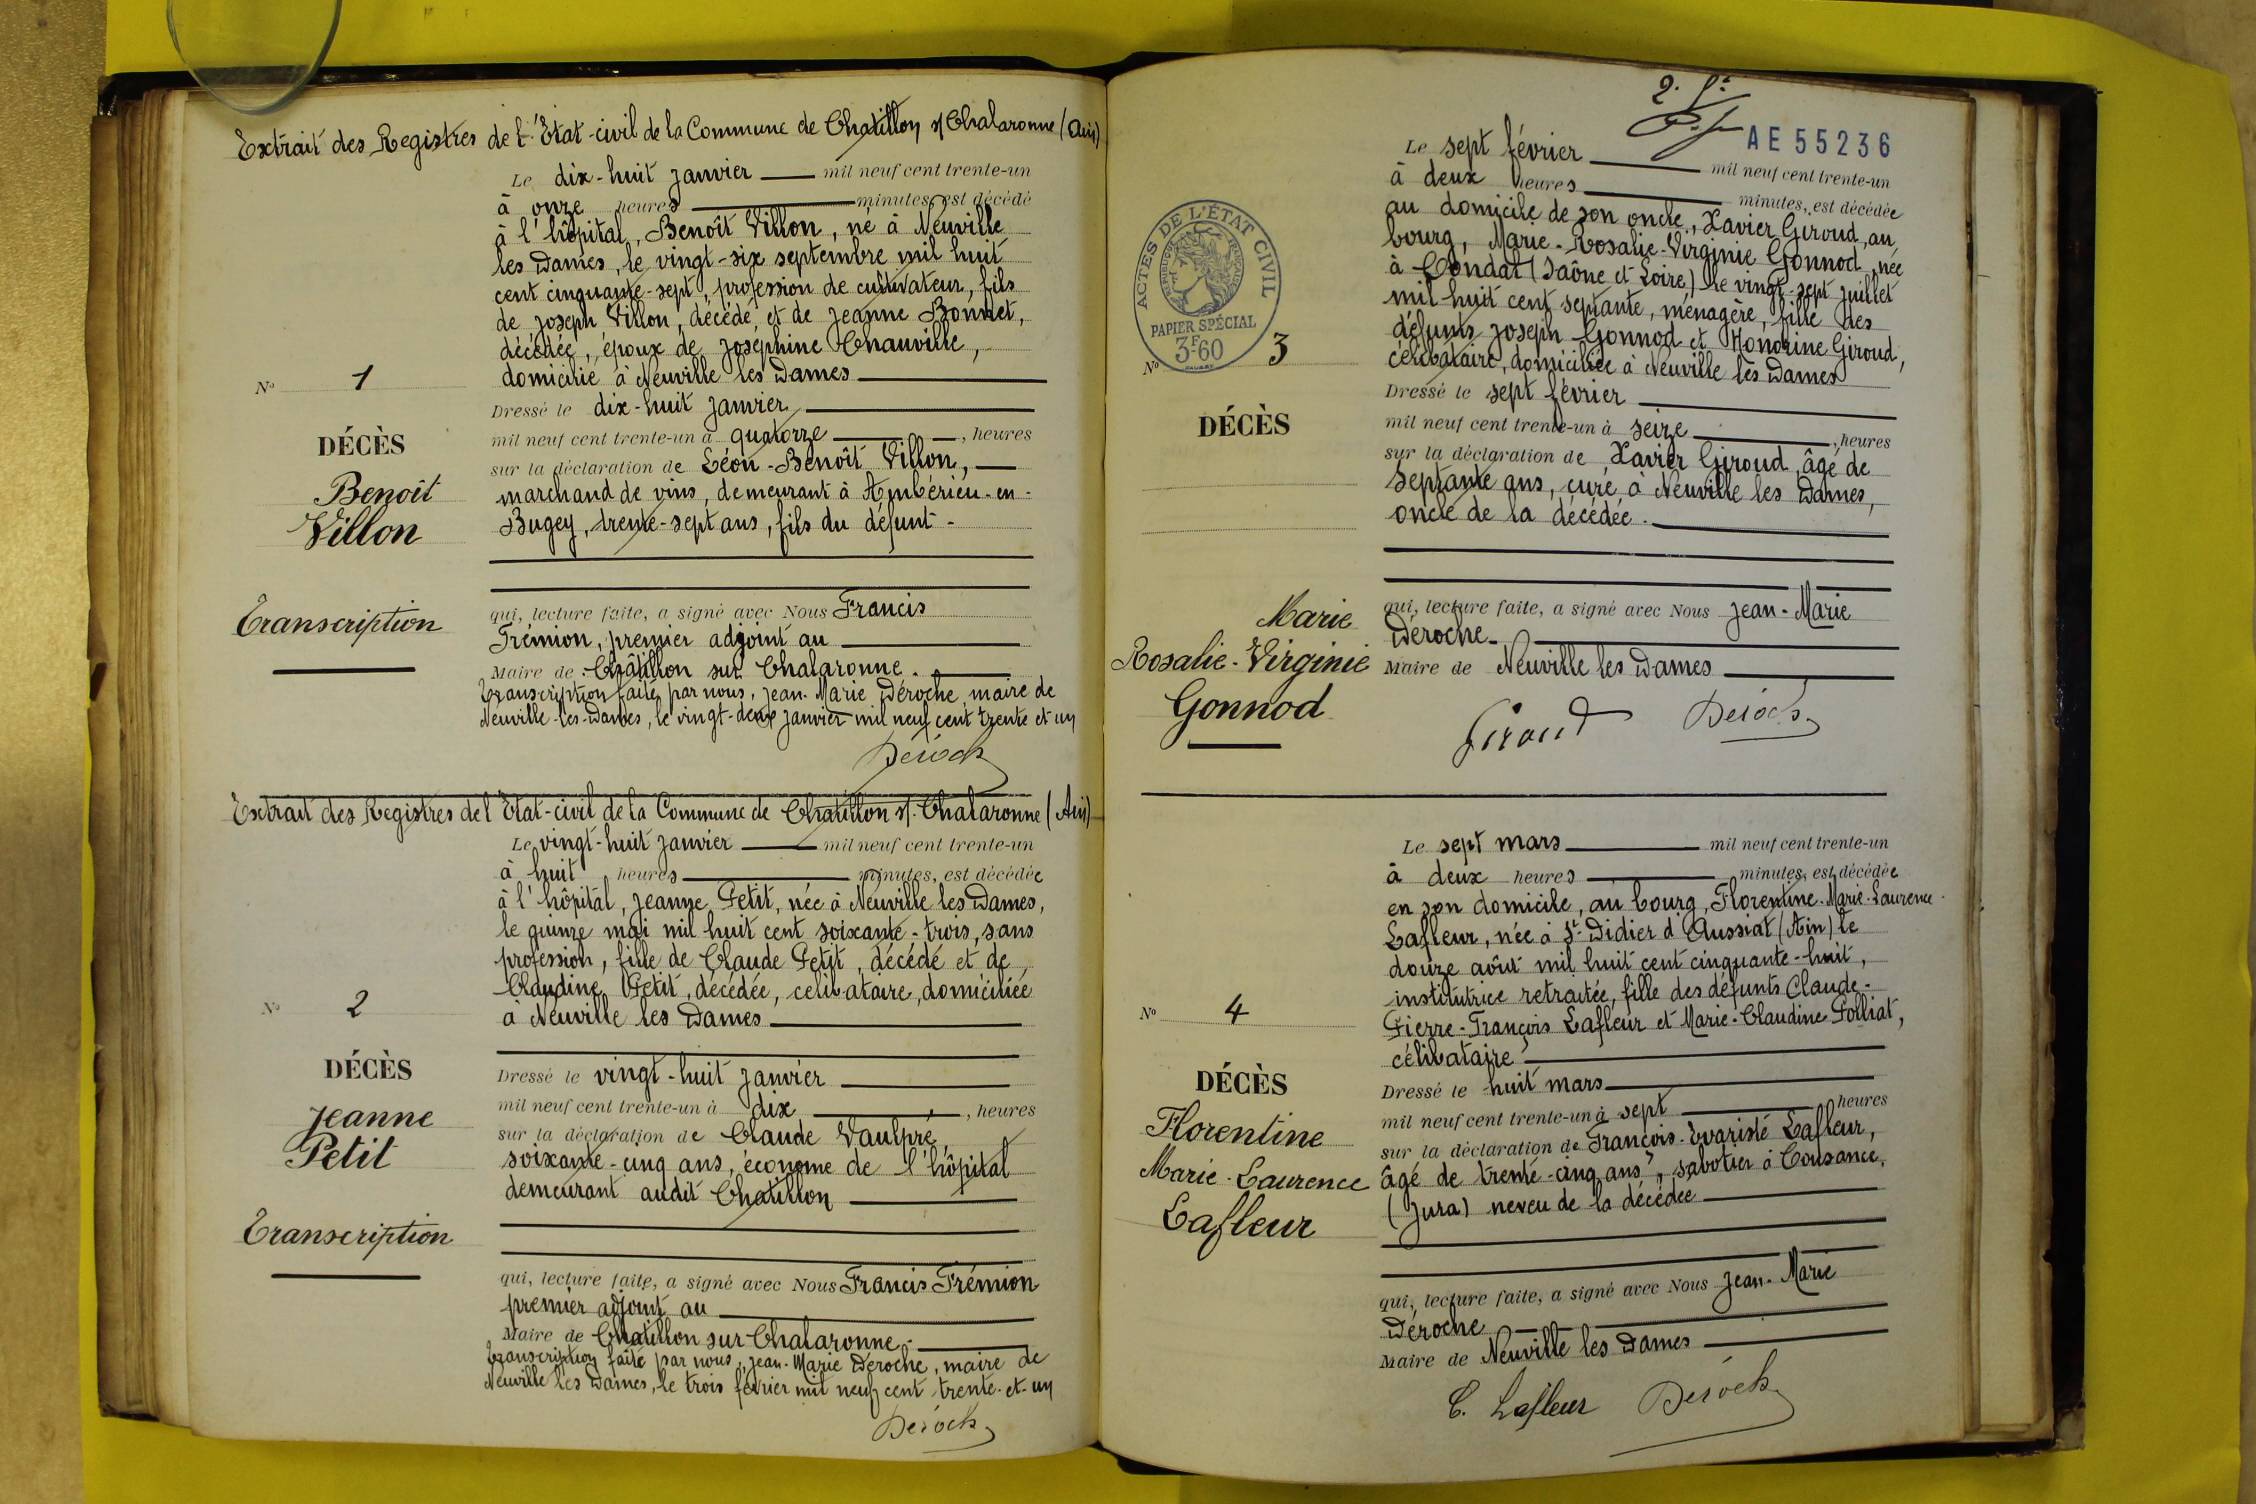 Extrait des Registres de l'Etat-civil de la Commune de Chatillon s/ Chalaronne (Ain)
Le dix-huit janvier mil neuf cent trente-un
à onze heures minutes, est décédé
à l'hôpital, Benoît Villon, né à Neuville
les Dames, le vingt-six septembre mil huit
cent cinquante-sept, profession de cultivateur, fils
de Joseph Villon, décédé, et de Jeanne Bonnet,
décédée, époux de Joséphine Chauville,
domicilié à Neuville les Dames
Nº 1
Dressé le dix-huit janvier
mil neuf cent trente-un à quatorze, heures
DÉCÈS
sur la déclaration de Léon-Benoît Villon,
Benoît
marchand de vins, demeurant à Ambérieu-en-
Villon
Bugey, trente-sept ans, fils du défunt-
qui, lecture faite, a signé avec Nous Francis
Transcription
Trémion, premier adjoint au
Maire de Châtillon sur Chalaronne.
Transcription faite par nous, Jean-Marie Déroche, maire de
Neuville-les-Dames, le vingt-deux janvier mil neuf cent trente et un
Déroch
Extrait des Registres de l'Etat-civil de la Commune de Chatillon s/. Chalaronne (Ain)
Le vingt-huit janvier mil neuf cent trente-un
à huit heures minutes, est décédée
à l'hôpital, Jeanne Petit, née à Neuville les Dames,
le quinze mai mil huit cent soixante-trois, sans
profession, fille de Claude Petit, décédé et de
Claudine Petit, décédée, célibataire, domiciliée
à Neuville les Dames
Nº 2
DÉCÈS
Dressé le vingt-huit janvier
mil neuf cent trente-un à dix, heures
Jeanne
sur la déclaration de Claude Vaulpré,
Petit
soixante-cinq ans, économe de l'hôpital
demeurant audit Chatillon
Transcription
qui, lecture faite, a signé avec Nous Francis Trémion
premier adjoint au
Maire de Chatillon sur Chalaronne.
Transcription faite par nous, Jean-Marie Déroche, maire de
Neuville les Dames, le trois février mil neuf cent trente-et-un
Déroch
AE 55236
Le sept février mil neuf cent trente-un
à deux heures minutes, est décédée
au domicile de son oncle, Xavier Giroud, au
bourg, Marie-Rosalie-Virginie Gonnod, née
à Condat (Saône et Loire) le vingt-sept juillet
mil huit cent septante, ménagère, fille des
défunts Joseph Gonnod et Honorine Giroud,
célibataire, domiciliée à Neuville les Dames
ACTES DE L'ÉTAT CIVIL
RÉPUBLIQUE FRANÇAISE
PAPIER SPÉCIAL
3F60
Nº 3
Dressé le sept février
DÉCÈS
mil neuf cent trente-un à seize, heures
sur la déclaration de Xavier Giroud, âgé de
septante ans, curé à Neuville les Dames,
oncle de la décédée.
Marie
Rosalie-Virginie
Gonnod
qui, lecture faite, a signé avec Nous Jean-Marie
Déroche
Maire de Neuville les Dames
Giroud Déroch
Le sept mars mil neuf cent trente-un
à deux heures minutes, est décédée
en son domicile, au bourg, Florentine-Marie-Laurence
Lafleur, née à St Didier d'Aussiat (Ain) le
douze août mil huit cent cinquante-huit,
institutrice retraitée, fille des défunts Claude-
Pierre-François Lafleur et Marie-Claudine Folliat,
célibataire
Nº 4
DÉCÈS
Dressé le huit mars
mil neuf cent trente-un à sept heures
Florentine
sur la déclaration de François-Evariste Lafleur,
Marie-Laurence
âgé de trente-cinq ans, sabotier à Cousance,
Lafleur
(Jura) neveu de la décédée
qui, lecture faite, a signé avec Nous Jean-Marie
Déroche
Maire de Neuville les Dames
C. Lafleur Déroch